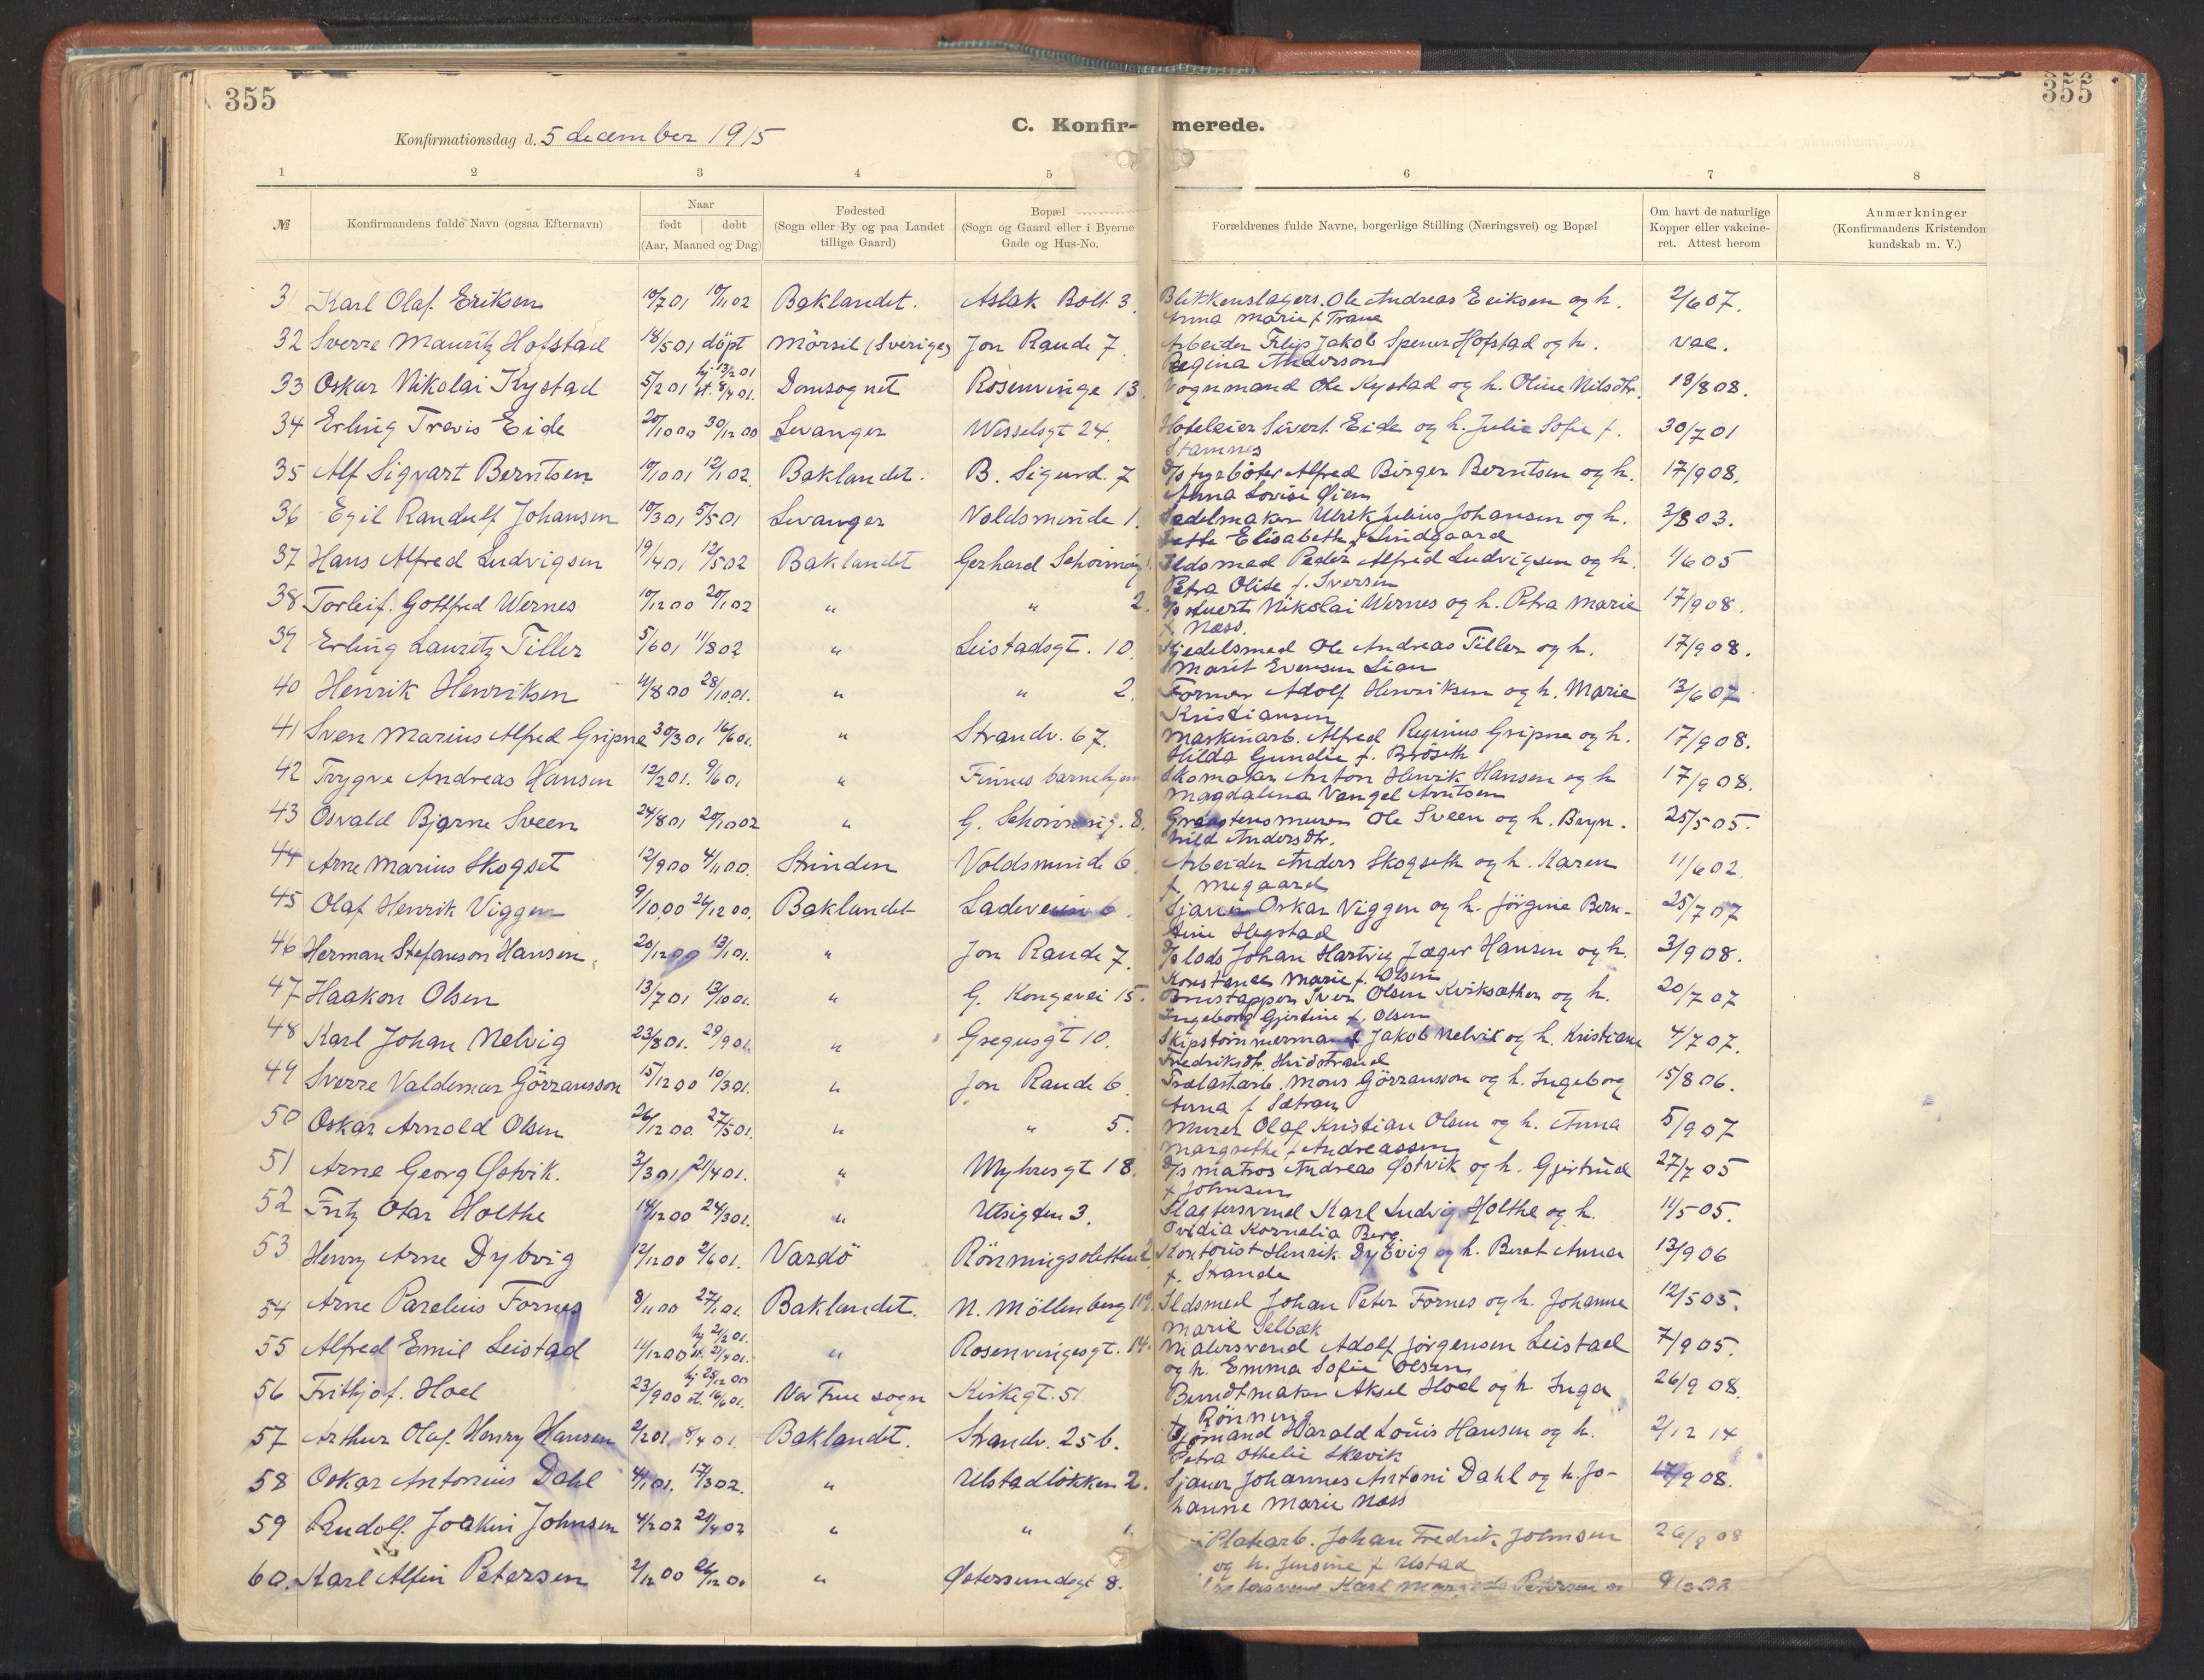 355
355
C. Konfir-merede.
Konfirmationsdag d. 5 december 1915
1 2 3 4 5 6 7 8
№ Konfirmandens fulde Navn (ogsaa Efternavn) Naar født døbt (Aar, Maaned og Dag) Fødested (Sogn eller By og paa Landet tillige Gaard) Bopæl (Sogn og Gaard eller i Byerne Gade og Hus-No. Forældrenes fulde Navne, borgerlige Stilling (Næringsvei) og Bopæl Om havt de naturlige Kopper eller vakcineret. Attest herom Anmærkninger (Konfirmandens Kristendom kundskab m. V.)
31 Karl Olaf Eriksen 10/7 01 10/11 02 Baklandet. Aslak Bolt. 3. Blikkenslagers. Ole Andreas Eriksen og h. 2/6 07.
Anna Marie f Trane
32 Sverre Mauritz Hofstad 18/5 01 döpt Mörsil (Sverige) Jon Raude 7. Arbeider Filip Jakob Spener Hofstad og h. vac.
Regina Anderson
33 Oskar Nikolai Kystad 5/2 01 hj 13/2 01 st. 8/4 01. Domsognet Rosenvinge 13. Vognmand Ole Kystad og h. Oline Nilsdtr. 19/8 08.
34 Erling Trevis Eide 20/10 00 30/12 00 Levanger Wesselsgt 24. Hoteleier Sivert Eide og h. Julie Sofie f. 30/7 01
Stamnes
35 Alf Sigvart Berntsen 10/10 01 12/1 02 Baklandet. B. Sigurd. 7 D/s fyrböter Alfred Birger Berntsen og h. 17/9 08.
Anna Lovise Öien
36 Egil Randulf Johansen 10/3 01 5/5 01 Levanger Voldsminde 1. Sedelmaker Ulrik Julius Johansen og h. 3/8 03.
Jette Elisabeth f Lindgaard
37 Hans Alfred Ludvigsen 19/4 01 12/5 02 Baklandet Gerhard Schöning 1. Ildsmed Peder Alfred Ludvigsen og h. 1/6 05
Petra Olise f. Iversen
38 Torleif. Gottfred Wernes 10/12 00 20/1 02 " " 2. D/s stuert Nikolai Wernes og h. Petra Marie 17/9 08.
f. Næss.
39 Erling Lauritz Tiller 5/6 01 11/8 02 " Leistadsgt. 10. Kjedelsmed Ole Andreas Tiller og h. 17/9 08.
Marit Evensen Lian
40 Henrik Henriksen 4/8 00 28/10 01. " " 2. Former Adolf Henriksen og h. Marie 13/6 07
Kristiansen
41 Sven Marius Alfred Gripne 30/3 01 16/6 01. " Strandv. 67. Maskinarb. Alfred Reginius Gripne og h. 17/9 08.
Hilda Gundie f. Bröseth
42 Trygve Andreas Hansen 12/2 01. 9/6 01 " Finnes barnehjem Skomaker Anton Henrik Hansen og h 17/9 08.
Magdalena Vangel Arntsen
43 Osvald Bjarne Sveen 24/8 01 20/10 02 " G. Schöning. 8. Graastensmurer Ole Sveen og h. Bryn- 25/5 05.
hild Andersdtr.
44 Arne Marius Skogset 12/9 00 4/11 00. Strinden Voldsminde 6. Arbeider Anders Skogseth og h. Karen 11/6 02.
f. Megaard
45 Olaf Henrik Viggen 9/10 00 26/12 00. Baklandet Ladeveien 6. Sjauer Oskar Viggen og h. Jörgine Bern- 25/7 07
tine Hegstad
46 Herman Stefanson Hansen. 20/12 00 13/1 01. " Jon Raude 7. D/s lods Johan Hartvig Jæger Hansen og h. 3/9 08.
Konstance Marie f. Olsen
47 Haakon Olsen 13/7 01 13/10 01. " G. Kongevei 15. Brustapper Iver Olsen Kviksæther og h. 20/7 07
Ingeborg Gjertine f. Olsen
48 Karl Johan Melvig 23/8 01. 29/9 01. " Gregusgt 10. Skipstömmermand Jakob Melvik og h. Kristiane 4/7 07.
Fredriksdtr. Hvidstrand
49 Sverre Valdemar Görransson 15/12 00 10/3 01. " Jon Raude 6. Trælastarb. Mons Görransson og h. Ingeborg 15/8 06.
Anna f Sætran
50 Oskar Arnold Olsen 26/12 00. 27/5 01. " " 5. Murer Olaf Kristian Olsen og h. Anna 5/9 07
Margrethe f Andreassen
51 Arne Georg Østvik. 3/3 01. 21/4 01. " Myhresgt 18. D/s matros Andreas Østvik og h. Gjertrud 27/7 05
f Johnsen
52 Fritz Otar Holthe 14/12 00 24/3 01. " Utsigten 3. Slagtersvend Karl Ludvig Holthe og h. 11/5 05.
Ovidia Kornelia Berg.
53 Henry Arne Dybvig 12/12 00 2/6 01. Vardö Rönningsletten 2. Kontorist Henrik Dybvig og h. Beret Anna 13/9 06
f. Strande
54 Arne Parelius Fornes 8/11 00 27/1 01. Baklandet. N. Möllenberg 119. Ildsmed Johan Peter Fornes og h. Johanne 12/5 05.
Marie Selbæk
55 Alfred Emil Leistad 11/12 00 hj 21/2 01. st. 21/4 01. " Rosenvingesgt. 14. Malersvend Adolf Jörgensen Leistad 7/9 05.
og h. Emma Sofie Olsen
56 Frithjof. Hoel 23/9 00 hj 25/12 00 st. 16/6 01. Vor Frue sogn Kirkegt. 51 Bundtmaker Aksel Hoel og h. Inga 26/9 08.
f Rönning
57 Arthur Olaf Henry Hansen 2/2 01. 8/4 01. Baklandet. Strandv. 25 b. Sjömand Harald Louis Hansen og h. 2/12 14
Petra Othelie Skevik
58 Oskar Antonius Dahl 4/1 01. 17/3 02. " Ulstadlökken 2. Sjauer Johannes Antoni Dahl og h. Jo- 17/9 08.
hanne Marie Næss
59 Rudolf Joakim Johnsen 4/2 02 21/4 02 " " 1. Platearb. Johan Fredrik Johnsen 26/9 08
og h. Jensine f Ulstad
60. Karl Alfin Petersen 2/12 00 26/12 00 " Østersundsgt 8. Karl Petersen